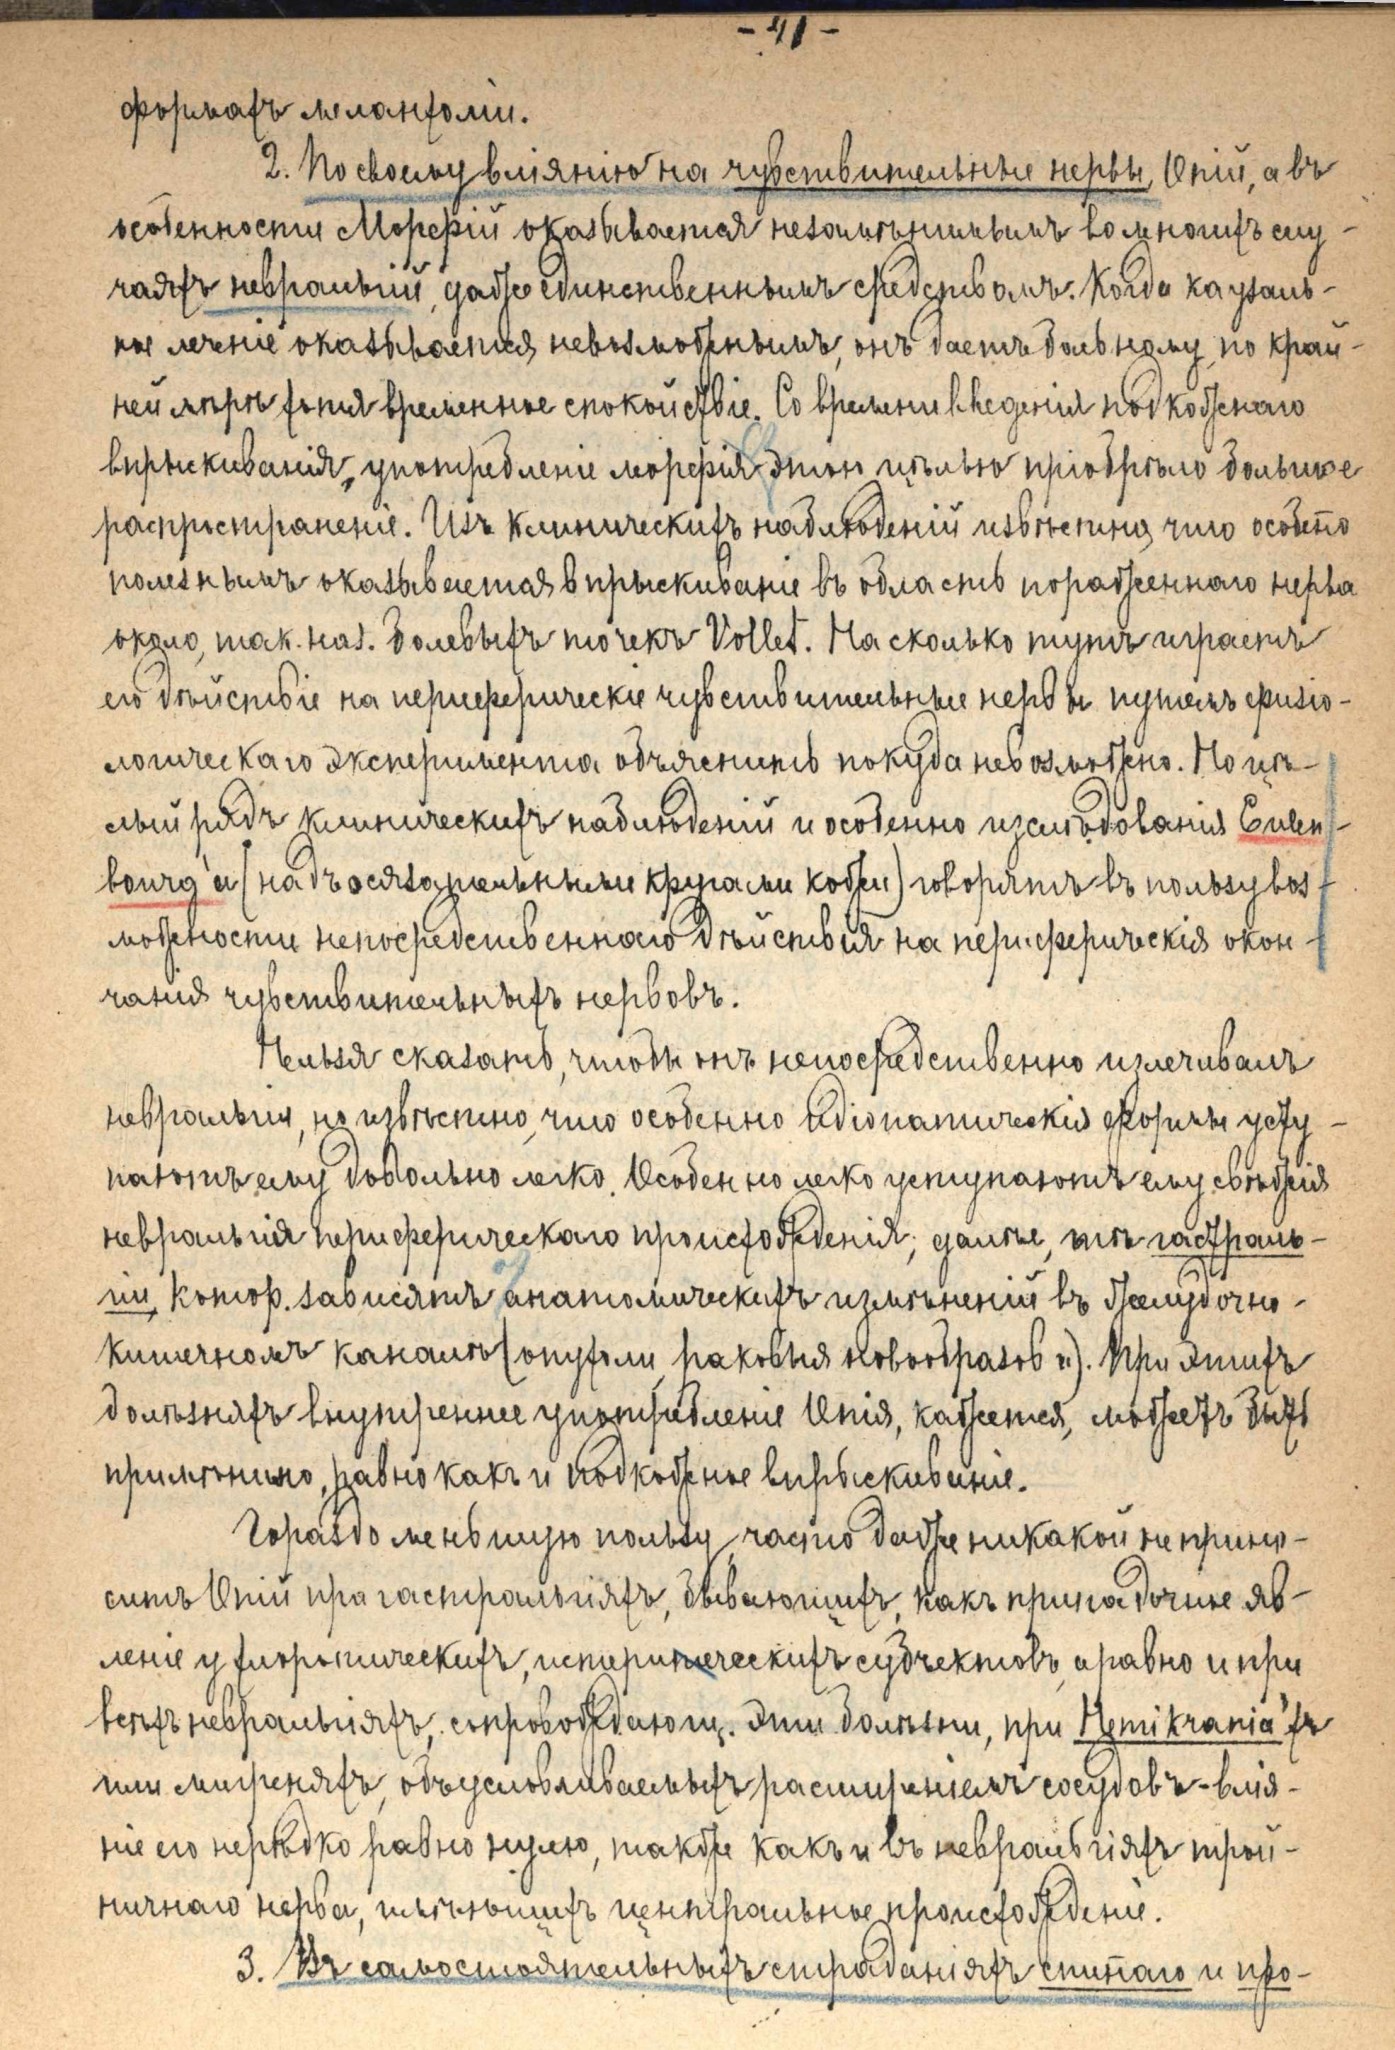 - 41 -
формахъ меланхоліи.
2. По своему вліянію на чувствительные нервы, Опій, а въ
особенности Морфій оказывается незамѣнимымъ во многихъ слу-
чаяхъ невралгій, даже единственнымъ средствомъ. Когда каузаль-
ное леченіе оказывается невозможнымъ, онъ даетъ больному, по край-
ней мѣрѣ хотя временное спокойствіе. Со времени введенія подкожнаго
впрыскиванія, употребленіе морфія съ этою цѣлью пріобрѣло большое
распространеніе. Изъ клиническихъ наблюденій извѣстно, что особен̃о
полезнымъ оказывается впрыскиваніе въ область пораженнаго нерва
около, так. наз. болевыхъ точекъ Vollet. На сколько тутъ играетъ
его дѣйствіе на периферическіе чувствительные нервы путемъ физіо-
логическаго эксперимента объяснить покуда невозможно. Но цѣ-
лый рядъ клиническихъ наблюденій и особенно изслѣдованія Eulen-
bourg'а (надъ осязательными кругами кожи) говорятъ въ пользу воз-
можности непосредственнаго дѣйствія на периферическія окон-
чанія чувствительныхъ нервовъ.
Нельзя сказать, чтобы онъ непосредственно излечивалъ
невральгіи, но извѣстно, что особенно идіопатическія формы усту-
паютъ ему довольно легко. Особенно легко уступаютъ ему свѣжія
невральгія периферическаго происхожденія; далѣе, тѣ гастраль-
гіи, котор. зависятъ от анатомическихъ измѣненій въ желудочно-
кишечномъ каналѣ (опухоли, раковыя новообразов.). При этихъ
болѣзняхъ внутреннее употребленіе Опія, кажется, можетъ быть
примѣнимо, равно какъ и подкожное впрыскиваніе.
Гораздо меньшую пользу, часто даже никакой не прино-
ситъ Опій при гастральгіяхъ, бывающихъ, какъ припадочное яв-
леніе у хлоротическихъ, истерическихъ субъектовъ, а равно и при
всѣхъ невральгіяхъ, сопровождающ. эти болѣзни, при Hemikrania'хъ
или мигреняхъ, обусловливаемыхъ расширеніемъ сосудовъ - влія-
ніе его нерѣдко равно нулю, также какъ и въ невральгіяхъ трой-
ничнаго нерва, имѣющихъ центральное происхожденіе.
3. Въ самостоятельныхъ страданіяхъ спин̃аго и про-